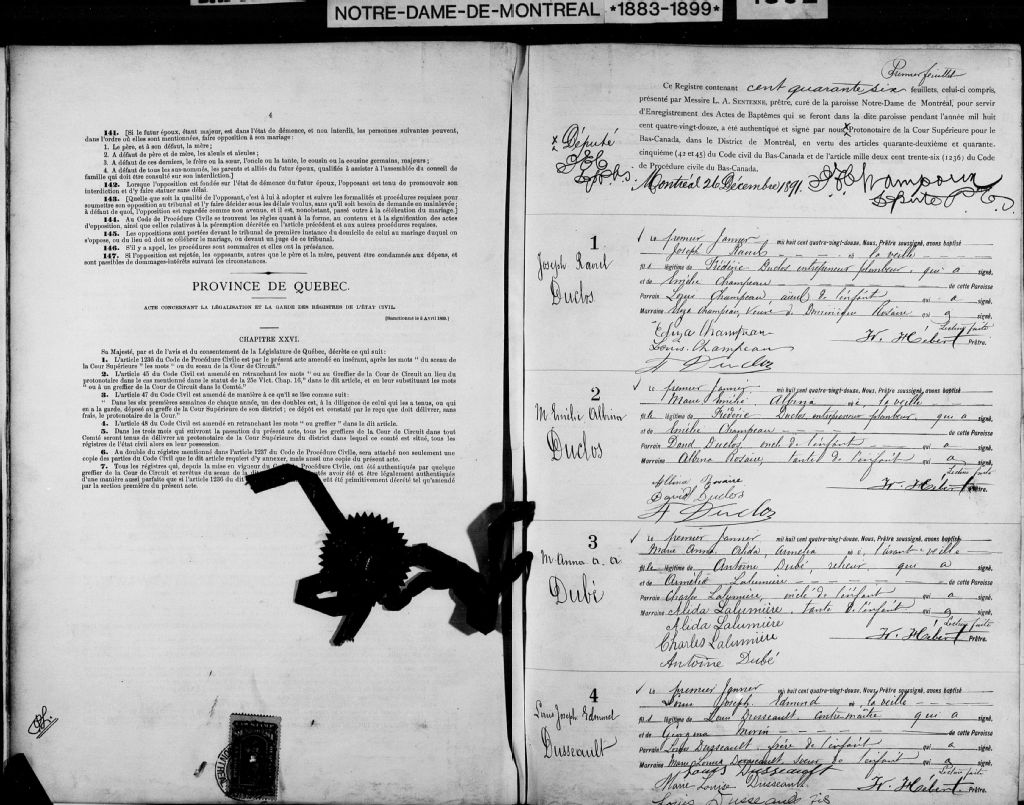 NOTRE-DAME-DE-MONTREAL *1883-1899*
4
141. [Si le futur époux, étant majeur, est dans l'état de démence, et non interdit, les personnes suivantes peuvent,
dans l'ordre où elles sont mentionnées, faire opposition à son mariage :
1. Le père, et à son défaut, la mère ;
2. A défaut de père et de mère, les aïeuls et aïeules ;
3. A défaut de ces derniers, le frère ou la sœur, l'oncle ou la tante, le cousin ou la cousine germains, majeurs ;
4. A défaut de tous les sus-nommés, les parents et alliés du futur époux, qualifiés à assister à l'assemblée du conseil de
famille qui doit être consulté sur son interdiction.]
142. Lorsque l'opposition est fondée sur l'état de démence du futur époux, l'opposant est tenu de promouvoir son
interdiction et d'y faire statuer sans délai.
143. [Quelle que soit la qualité de l'opposant, c'est à lui à adopter et suivre les formalités et procédures requises pour
soumettre son opposition au tribunal et l'y faire décider sous les délais voulus, sans qu'il soit besoin de demande en mainlevée ;
à défaut de quoi, l'opposition est regardée comme non avenue, et il est, nonobstant, passé outre à la célébration du mariage.]
144. Au Code de Procédure Civile se trouvent les règles quant à la forme, au contenu et à la signification des actes
d'opposition, ainsi que celles relatives à la péremption décrétée en l'article précédent et aux autres procédures requises.
145. Les oppositions sont portées devant le tribunal de première instance du domicile de celui au mariage duquel on
s'oppose, ou du lieu où doit se célébrer le mariage, ou devant un juge de ce tribunal.
146. S'il y a appel, les procédures sont sommaires et elles ont la préséance.
147. Si l'opposition est rejetée, les opposants, autres que le père et la mère, peuvent être condamnés aux dépens, et
sont passibles de dommages-intérêts suivant les circonstances.
PROVINCE DE QUEBEC.
ACTE CONCERNANT LA LÉGALISATION ET LA GARDE DES REGISTRES DE L'ÉTAT CIVIL.
CHAPITRE XXVI.
Sa Majesté, par et de l'avis et du consentement de la Législature de Québec, décrète ce qui suit :
1. L'article 1236 du Code de Procédure Civile est par le présent acte amendé en insérant, après les mots " du sceau de
la Cour Supérieure " les mots " ou du sceau de la Cour de Circuit."
2. L'article 45 du Code Civil est amendé en retranchant les mots " ou au Greffier de la Cour de Circuit au lieu du
protonotaire dans le cas mentionné dans le statut de la 25e Vict. Chap. 16," dans le dit article, et en leur substituant les mots
" ou à un greffier de la Cour de Circuit dans le Comté."
3. L'article 47 du Code Civil est amendé de manière à ce qu'il se lise comme suit :
" Dans les six premières semaines de chaque année, un des doubles est, à la diligence de celui qui les a tenus, ou qui
en a la garde, déposé au greffe de la Cour Supérieure de son district ; ce dépôt est constaté par le reçu que doit délivrer, sans
frais, le protonotaire de la Cour."
4. L'article 48 du Code Civil est amendé en retranchant les mots " ou greffier " dans le dit article.
5. Dans les trois mois qui suivront la passation du présent acte, tous les greffiers de la Cour de Circuit dans tout
Comté seront tenus de délivrer au protonotaire de la Cour Supérieure du district dans lequel ce comté est situé, tous les
registres de l'état civil alors en leur possession.
6. Au double du registre mentionné dans l'article 1237 du Code de Procédure Civile, sera attaché non seulement une
copie des parties du Code Civil que le dit article requiert d'y annexer, mais aussi une copie du présent acte.
7. Tous les registres qui, depuis la mise en vigueur du Code de Procédure Civile, ont été authentiqués par quelque
greffier de la Cour de Circuit et revêtus du sceau de la avoir été et être légalement authentiqués
d'une manière aussi parfaite que si l'article 1236 du dit eut été primitivement décrété tel qu'amendé
par la section première du présent acte.
Premier feuillet
Ce Registre contenant cent quarante six feuillets, celui-ci compris,
présenté par Messire L. A. SENTENNE, prêtre, curé de la paroisse Notre-Dame de Montréal, pour servir
d'Enregistrement des Actes de Baptêmes qui se feront dans la dite paroisse pendant l'année mil huit
cent quatre-vingt-douze, a été authentiqué et signé par nous Protonotaire de la Cour Supérieure pour le
Bas-Canada, dans le District de Montréal, en vertu des articles quarante-deuxième et quarante-
cinquième (42 et 45) du Code civil du Bas-Canada et de l'article mille deux cent trente-six (1236) du Code
de Procédure civile du Bas-Canada.
Député
Montréal 26 Décembre 1891.
Député
1
Joseph
Duclos
Le premier Janvier mil huit cent quatre-vingt-douze. Nous, Prêtre soussigné, avons baptisé
Joseph né la veille
fils légitime de Frédéric Duclos entrepreneur plombier, qui a signé,
et de Emélie Champeau de cette Paroisse
Parrain Louis Champeau, aïeul de l'enfant qui a signé.
Marraine Eliza Champeau, veuve de Dominique Rosaire qui a signé.
Lecture faite
Eliza Champeau
H. Hébert
Louis Champeau
F Duclos
2
M Emilie Albina
Duclos
Le premier Janvier mil huit cent quatre-vingt-douze. Nous, Prêtre soussigné, avons baptisé
Marie Emélie Albina née la veille
fille légitime de Frédéric Duclos entrepreneur plombier, qui a signé,
et de Emélie Champeau de cette Paroisse
Parrain David Duclos, oncle de l'enfant qui a signé.
Marraine Albina Rosaire, tante de l'enfant qui a signé.
Lecture faite
Albina Rosaire
H. Hébert Prêtre.
David Duclos
F Duclos
3
M Anna A. A
Dubé
Le premier Janvier mil huit cent quatre-vingt-douze. Nous, Prêtre soussigné, avons baptisé
Marie Anna Alida, Armélia née l'avant-veille
fille légitime de Antoine Dubé, relieur, qui a signé,
et de Armélia Lalumière de cette Paroisse
Parrain Charles Lalumière, oncle de l'enfant qui a signé.
Marraine Alida Lalumière, tante de l'enfant qui a signé.
Lecture faite
Alida Lalumière
H. Hébert Prêtre.
Charles Lalumière
Antoine Dubé
4
Louis Joseph Edmond
Dusseault
Le premier Janvier mil huit cent quatre-vingt-douze. Nous, Prêtre soussigné, avons baptisé
Louis Joseph Edmond né la veille
fils légitime de Louis Dusseault, contre-maître qui a signé,
et de Georgina Morin de cette Paroisse
Parrain Louis Dusseault, frère de l'enfant qui a signé.
Marraine Marie Louise Dusseault, sœur de l'enfant qui a signé.
Lecture faite
Louis Dusseault
Marie Louise Dusseault
H. Hébert Prêtre.
Louis Dusseault fils